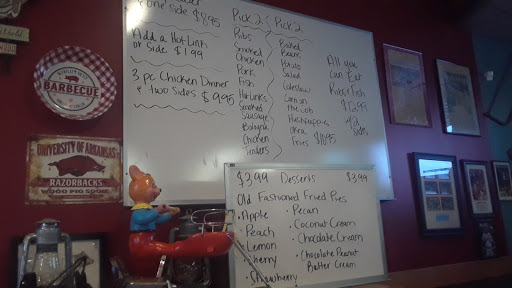 one side $8.95
Add a Hot Link
or Side $1.99
3 pc Chicken Dinner
two Sides $9.95
Pick 2 Pick 2
Ribs
Smoked
Chicken
Pork
Fish
Hot Links
Smoked
Sausage
Bologna
Chicken
Tenders
Baked
Beans
Potato
Salad
Coleslaw
Corn on
the cob
Hushpuppies
Okra
Fries
All you
Can Eat
Ribs & Fish
$12.99
w/2
Sides
BARBECUE
UNIVERSITY OF ARKANSAS
RAZORBACKS
WOOO PIG SOOIE
$3.99 Desserts $3.99
Old Fashioned Fried Pies
• Apple
• Peach
• Lemon
• Cherry
• Strawberry
• Pecan
• Coconut Cream
• Chocolate Cream
• Chocolate Peanut
Butter Cream